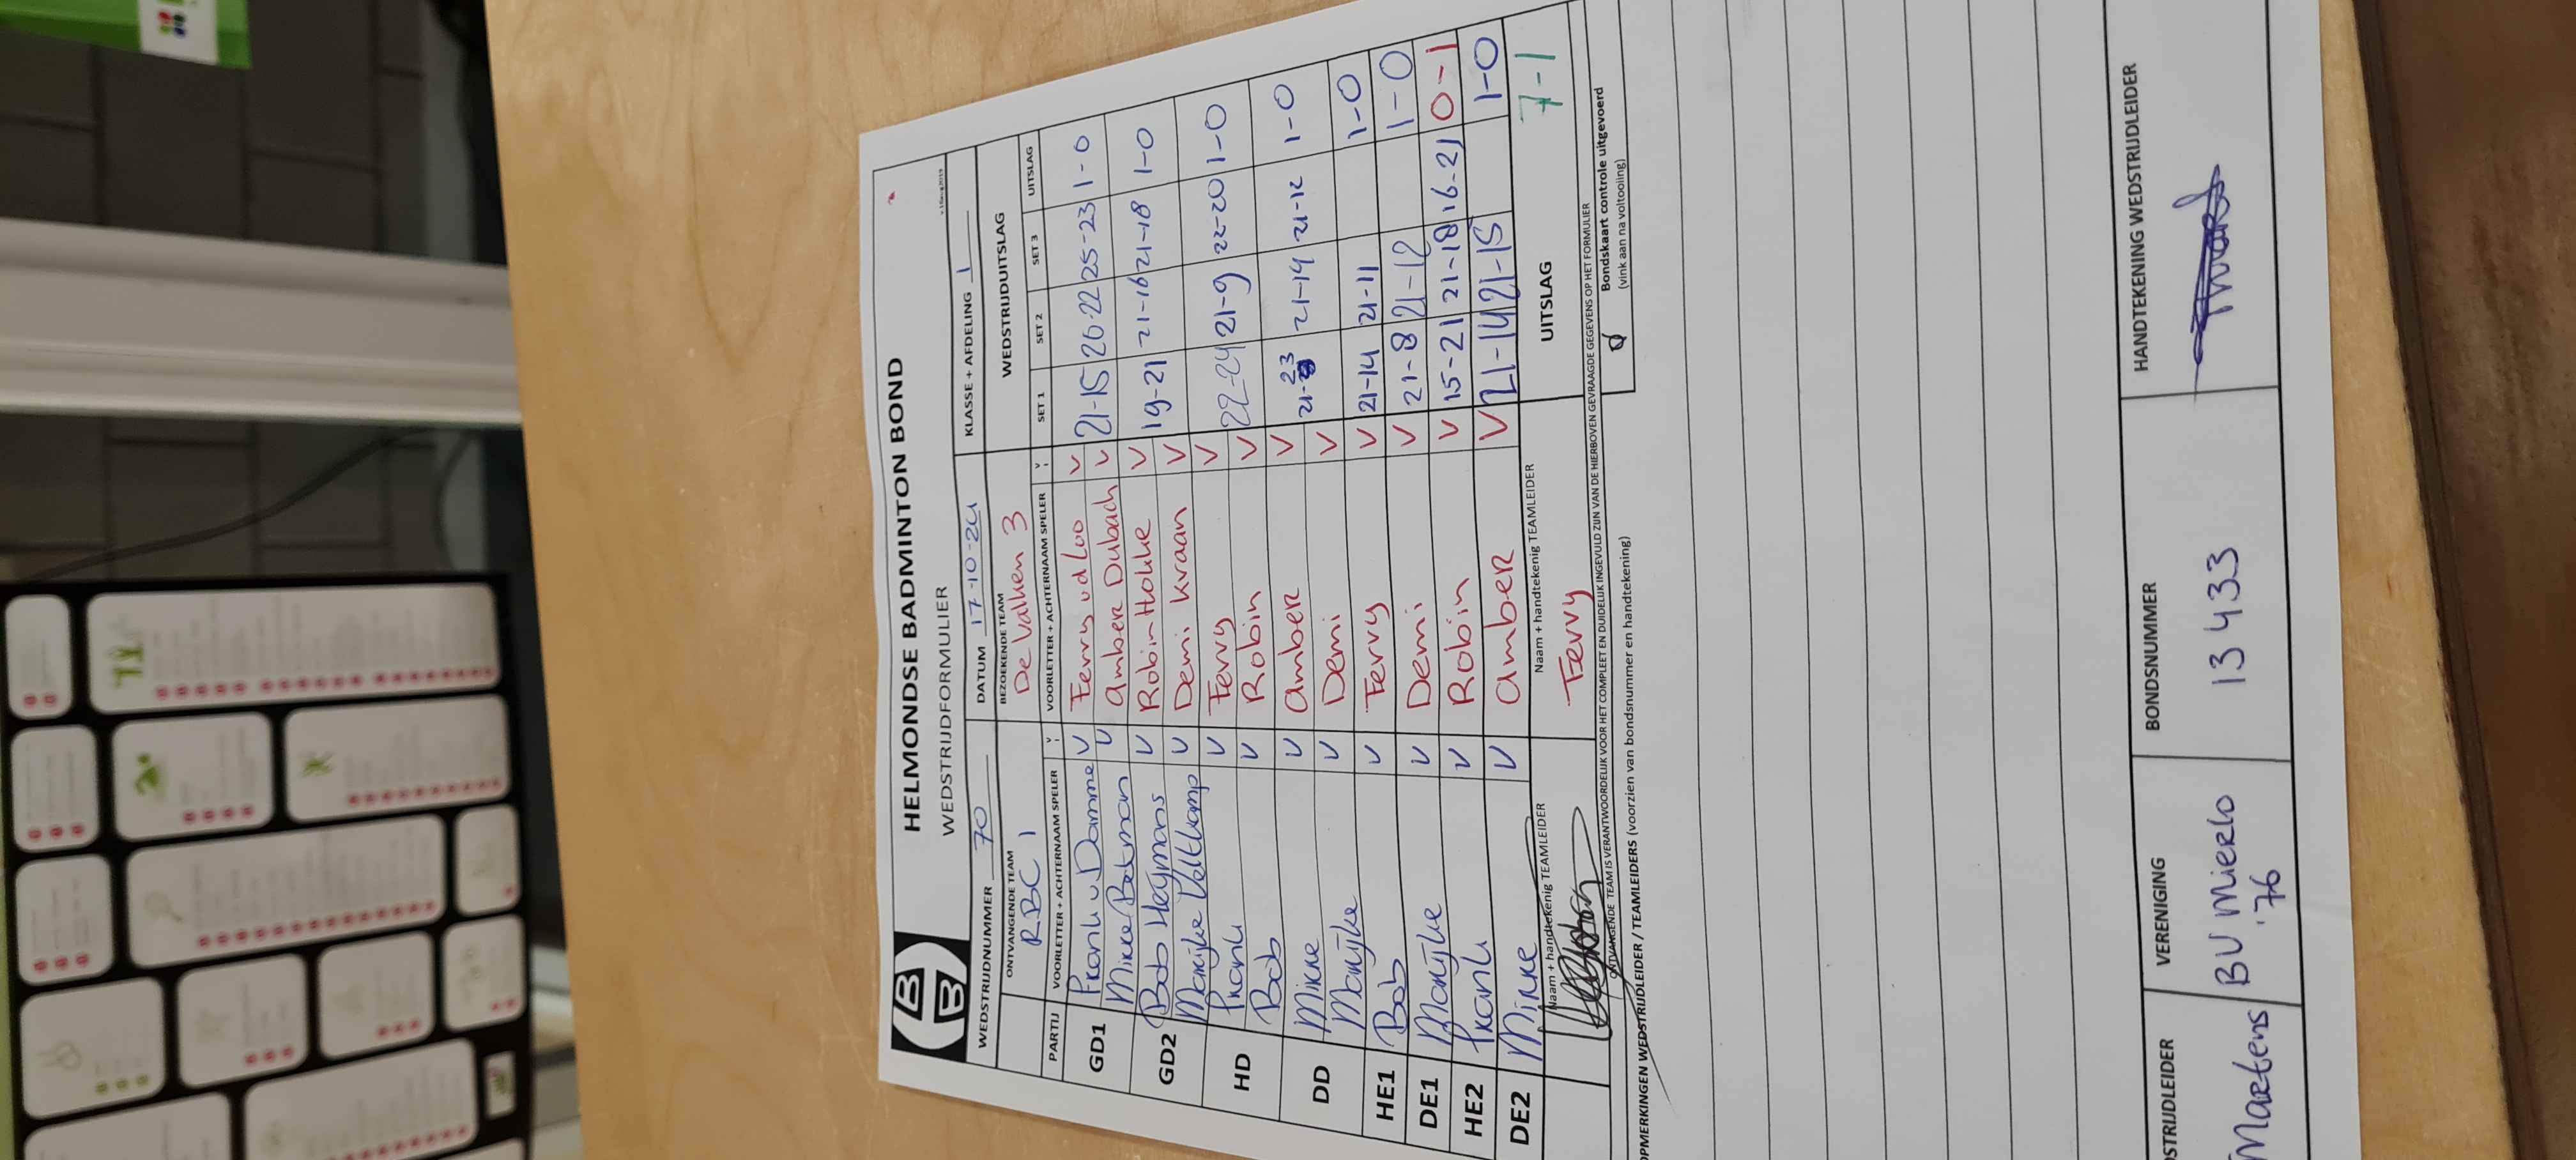 HELMONDSE BADMINTON BOND
WEDSTRIJDFORMULIER
WEDSTRIJDNUMMER 70 DATUM 17-10-24 KLASSE + AFDELING 1
ONTVANGENDE TEAM BEZOEKENDE TEAM WEDSTRIJDUITSLAG
RBC 1 De Valken 3
PARTIJ VOORLETTER + ACHTERNAAM SPELER V VOORLETTER + ACHTERNAAM SPELER V SET 1 SET 2 SET 3 UITSLAG
GD1 Frank v Damme V Ferry vd Loo V 21-15 20-22 25-23 1-0
Mirre Betman V Amber Dubach V
GD2 Bob Heijmans V Robin Hokke V 19-21 21-16 21-18 1-0
Marijke Veltkamp V Demi Kraan V
HD Frank V Ferry V 22-24 21-9 22-20 1-0
Bob V Robin V
DD Mirre V Amber V 21-23 21-14 21-12 1-0
Marijke V Demi V
HE1 Bob V Ferry V 21-14 21-11 1-0
DE1 Marijke V Demi V 21-8 21-12 1-0
HE2 Frank V Robin V 15-21 21-18 16-21 0-1
DE2 Mirre V Amber V 21-14 21-15 1-0
Naam + handtekenig TEAMLEIDER Naam + handtekenig TEAMLEIDER UITSLAG 7-1
Ferry
ONTVANGENDE TEAM IS VERANTWOORDELIJK VOOR HET COMPLEET EN DUIDELIJK INGEVULD ZIJN VAN DE HIERBOVEN GEVRAAGDE GEGEVENS OP HET FORMULIER
Bondskaart controle uitgevoerd
(vink aan na voltooiing)
OPMERKINGEN WEDSTRIJDLEIDER / TEAMLEIDERS (voorzien van bondsnummer en handtekening)
STRIJDLEIDER VERENIGING BONDSNUMMER HANDTEKENING WEDSTRIJDLEIDER
Martens BV Mierlo '76 13433